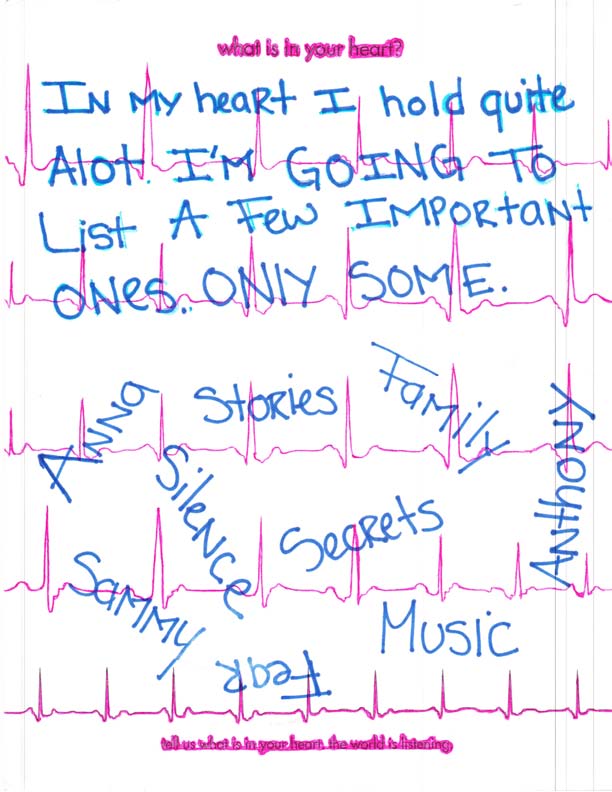 what is in your heart?
IN MY heart I hold quite
Alot. I'M GOING TO
List A Few IMPORtant
ONes.. ONlY SOME.
Anna
Stories
Family
Anthony
Silence
Secrets
Sammy
Music
Fear
tell us what is in your heart. the world is listening.